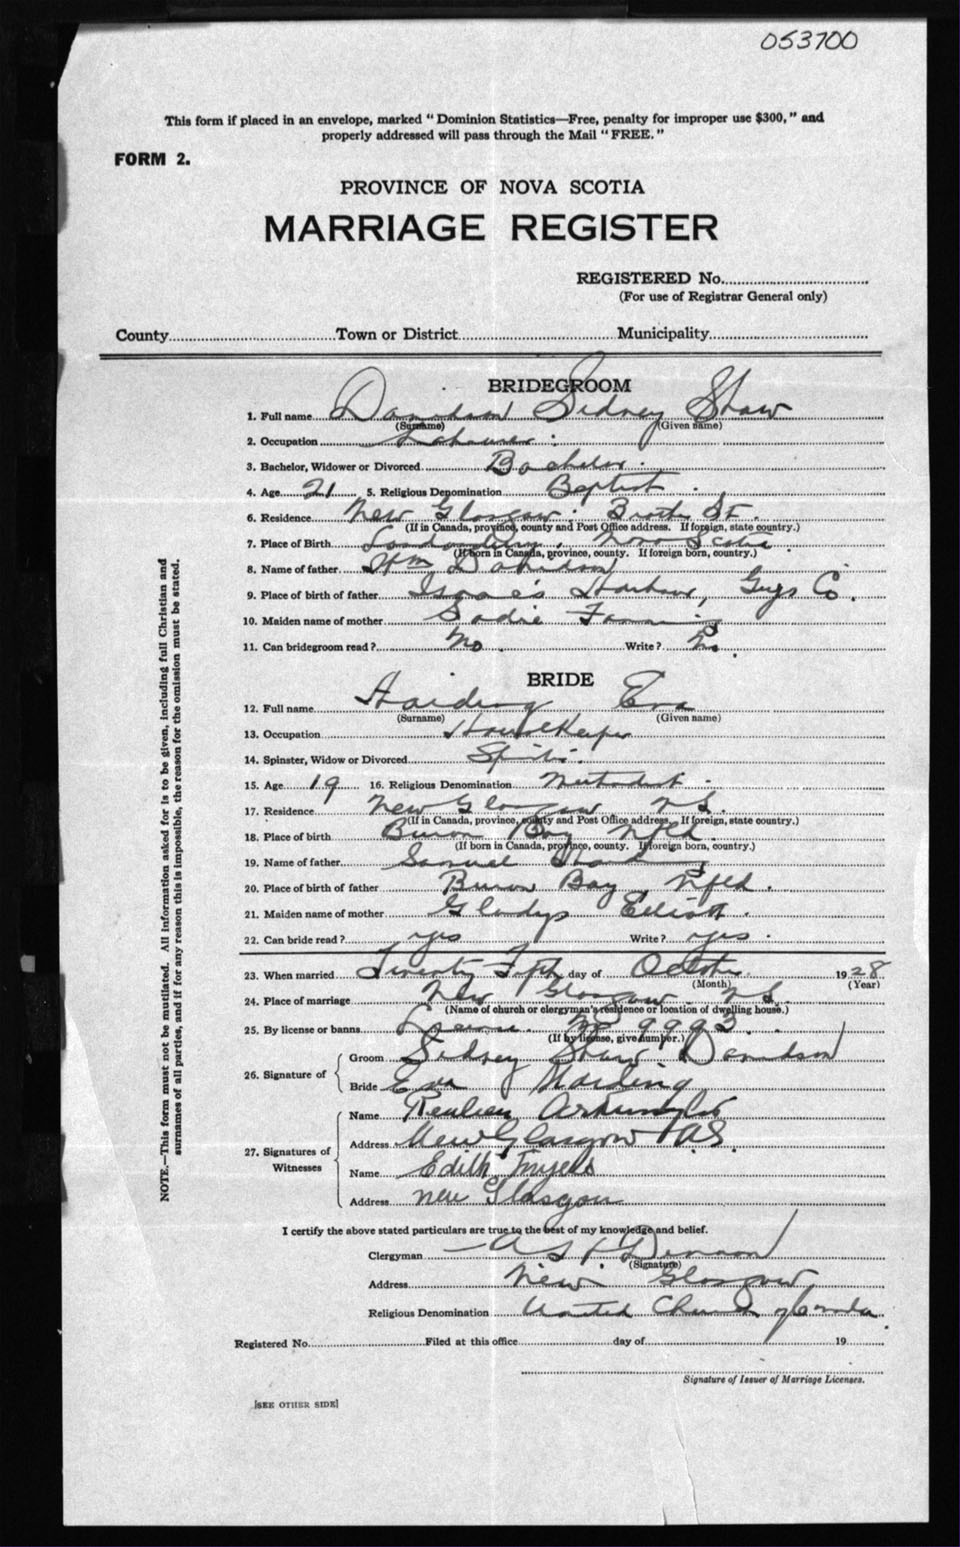 053700
This form if placed in an envelope, marked "Dominion Statistics—Free, penalty for improper use $300," and
properly addressed will pass through the Mail "FREE."
FORM 2.
PROVINCE OF NOVA SCOTIA
MARRIAGE REGISTER
REGISTERED No.
(For use of Registrar General only)
County Town or District Municipality
BRIDEGROOM
1. Full name Davidson Sidney Shaw
(Surname) (Given name)
2. Occupation Labourer
3. Bachelor, Widower or Divorced Bachelor
4. Age 21 5. Religious Denomination Baptist
6. Residence New Glasgow St.
(If in Canada, province, county and Post Office address. If foreign, state country.)
7. Place of Birth Nova Scotia
(If born in Canada, province, county. If foreign born, country.)
8. Name of father Wm Davidson
9. Place of birth of father Isaac's Harbour, Guys Co.
10. Maiden name of mother Sadie
11. Can bridegroom read? No. Write? No.
BRIDE
12. Full name Harding Eva
(Surname) (Given name)
13. Occupation HouseKeeper
14. Spinster, Widow or Divorced Spinster
15. Age 19 16. Religious Denomination Methodist
17. Residence New Glasgow N.S.
(If in Canada, province, county and Post Office address. If foreign, state country.)
18. Place of birth Bay Nfld.
(If born in Canada, province, county. If foreign born, country.)
19. Name of father Samuel Harding
20. Place of birth of father Bay Nfld.
21. Maiden name of mother Gladys Elliott.
22. Can bride read? yes Write? yes.
23. When married Twenty Fifth day of October 1928
(Month) (Year)
24. Place of marriage New Glasgow N.S.
(Name of church or clergyman's residence or location of dwelling house.)
25. By license or banns License No 9993.
(If by license, give number.)
26. Signature of
Groom Sidney Shaw Davidson
Bride Eva Harding
27. Signatures of
Witnesses
Name Reuben
Address New Glasgow N.S.
Name Edith
Address New Glasgow
I certify the above stated particulars are true to the best of my knowledge and belief.
Clergyman
(Signature)
Address New Glasgow
Religious Denomination United Church of Canada.
Registered No. Filed at this office day of 19
Signature of Issuer of Marriage Licenses.
[SEE OTHER SIDE]
NOTE.—This form must not be mutilated. All information asked for is to be given, including full Christian and
surnames of all parties, and if for any reason this is impossible, the reason for the omission must be stated.